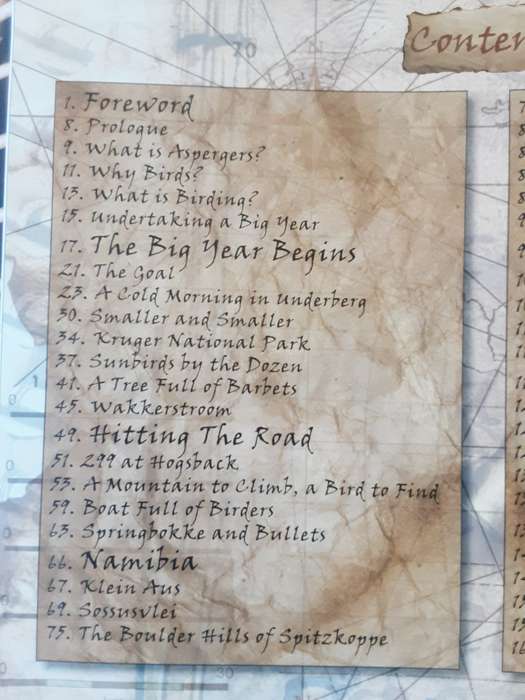 20
1. Foreword
8. Prologue
9. What is Aspergers?
11. Why Birds?
13. What is Birding?
15. Undertaking a Big Year
17. The Big Year Begins
21. The Goal
23. A Cold Morning in Underberg
30. Smaller and Smaller
34. Kruger National Park
37. Sunbirds by the Dozen
41. A Tree Full of Barbets
45. Wakkerstroom
49. Hitting The Road
51. 299 at Hogsback
53. A Mountain to Climb, a Bird to Find
59. Boat Full of Birders
63. Springbokke and Bullets
66. Namibia
67. Klein Aus
69. Sossusvlei
75. The Boulder Hills of Spitzkoppe